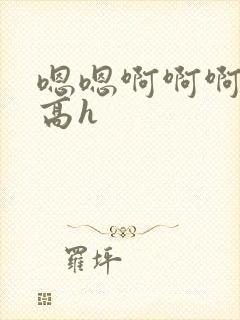 嗯嗯啊啊啊
高h
羅坪